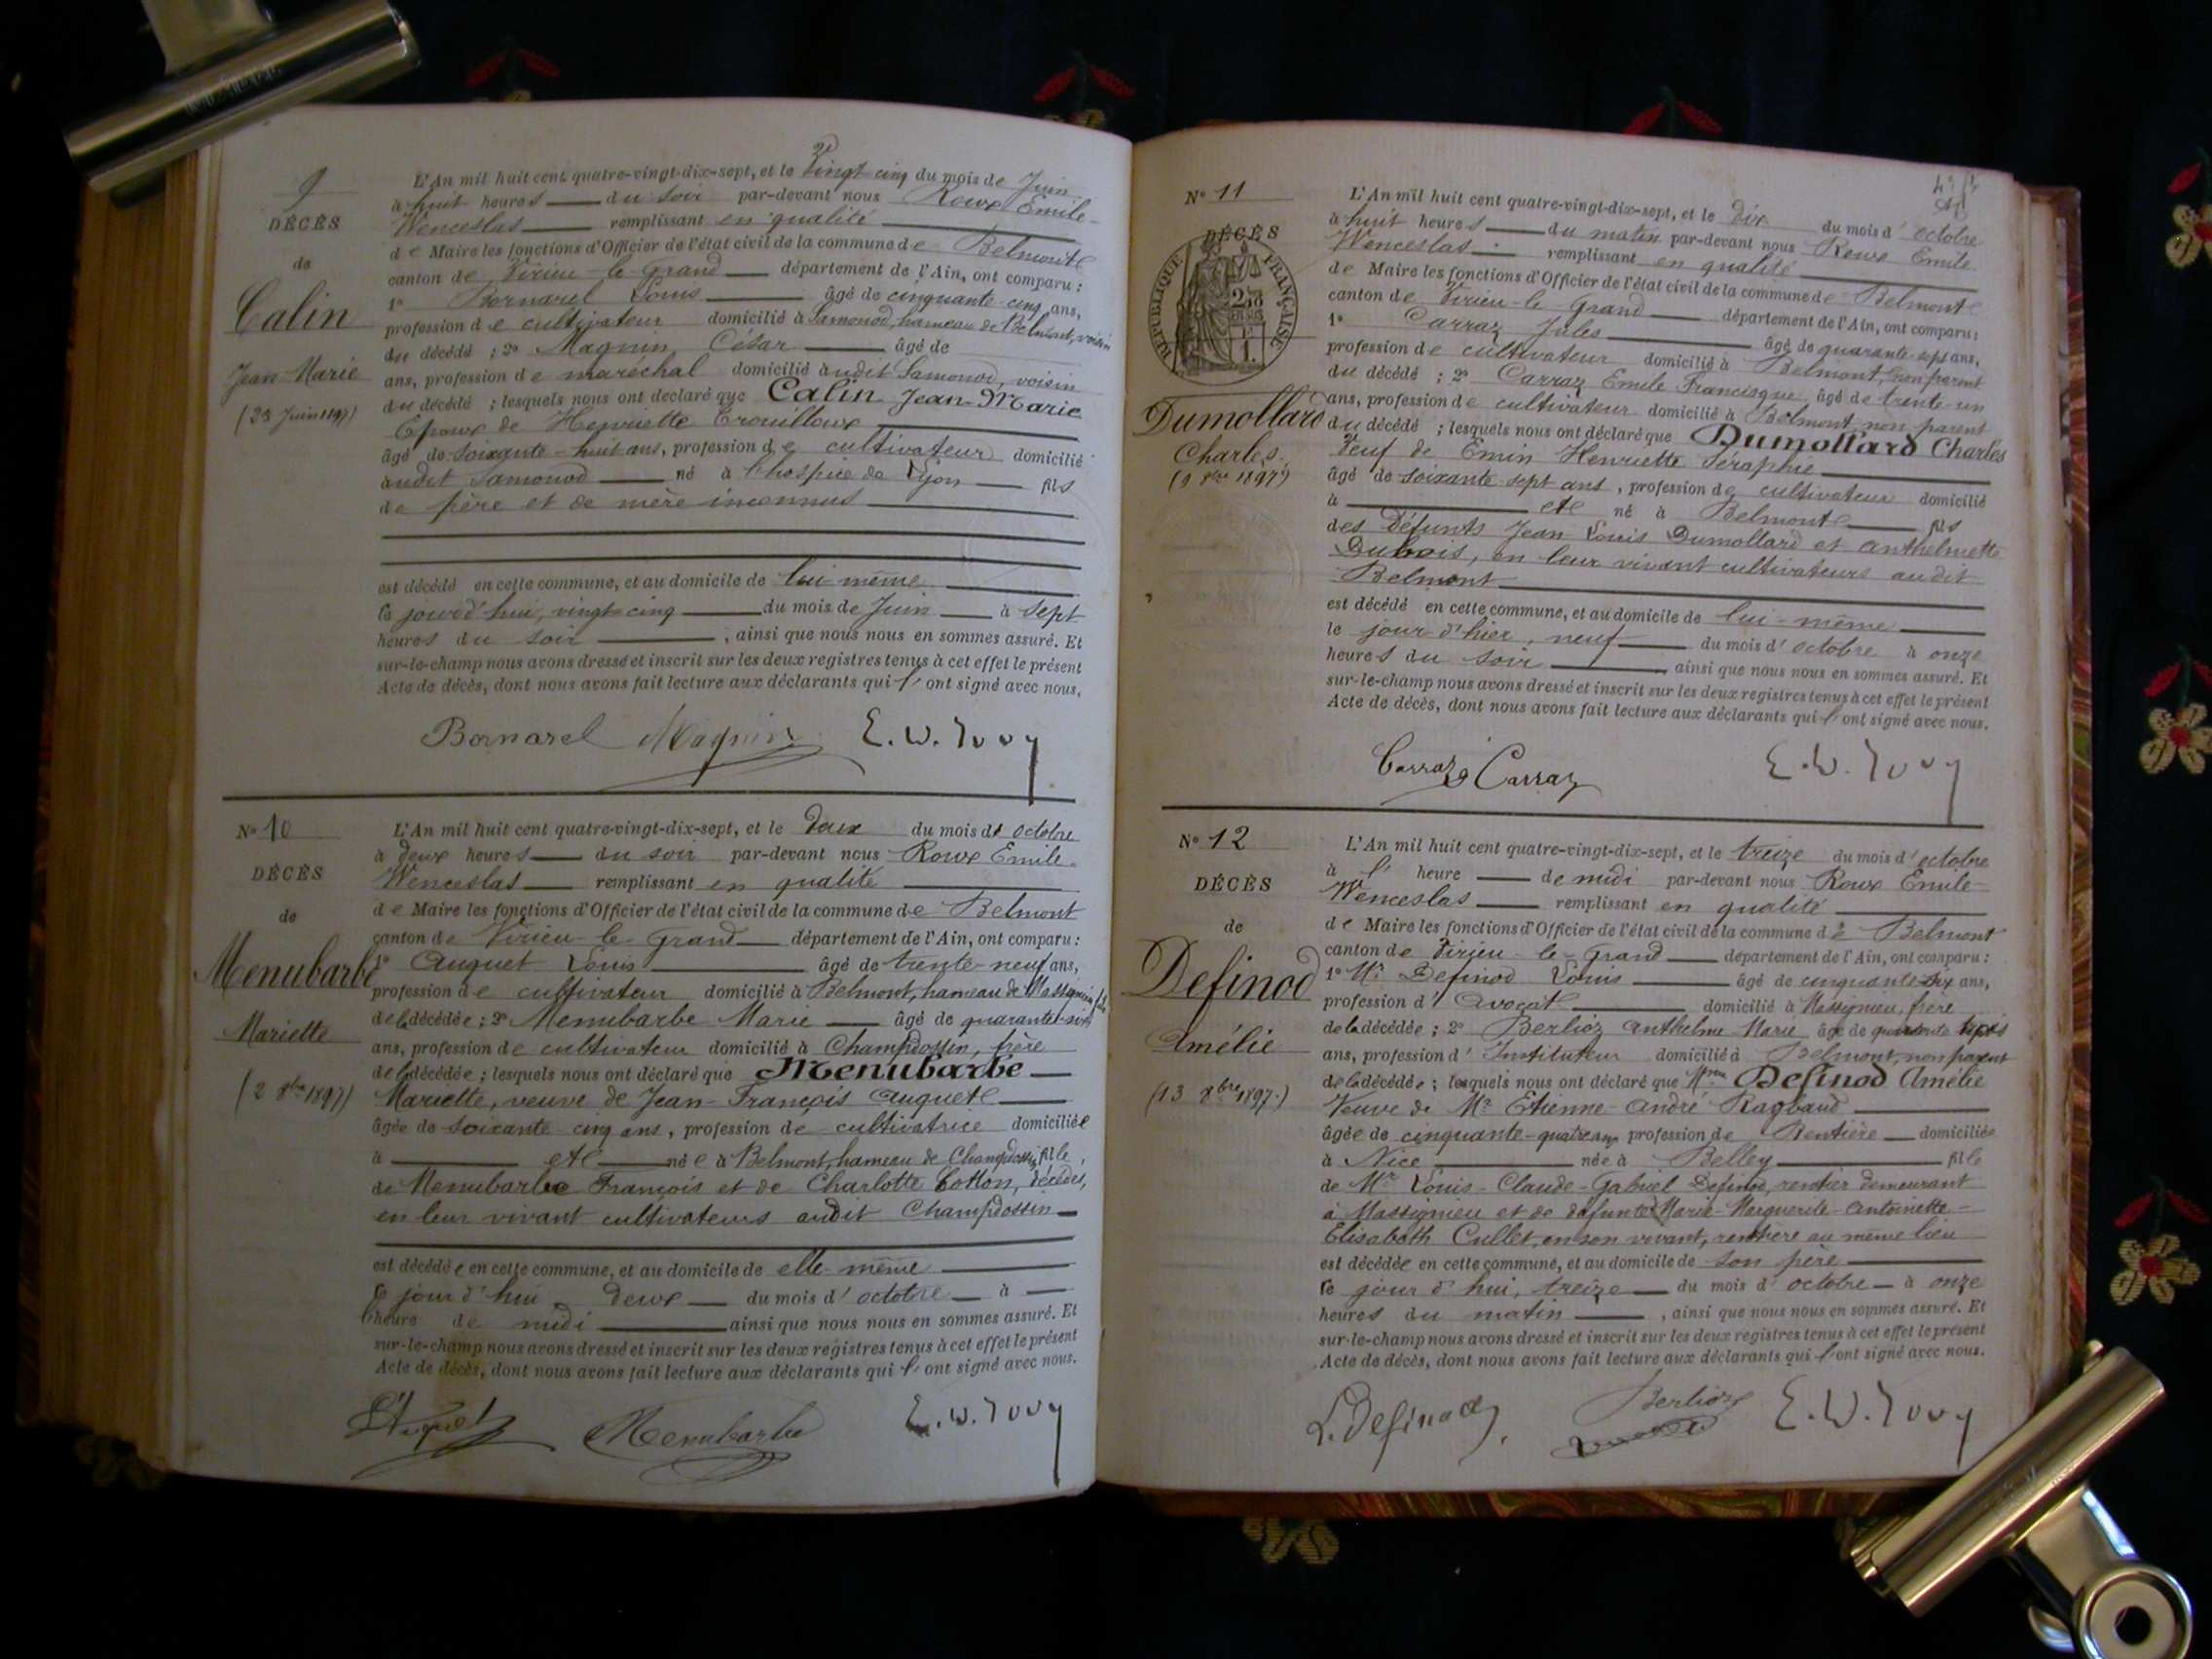 9
DÉCÈS
de
Calin
Jean Marie
(25 Juin 1897)
L'An mil huit cent quatre-vingt-dix-sept, et le vingt cinq du mois de Juin
à huit heures du soir par-devant nous Roux Emile-
Wenceslas remplissant en qualité
de Maire les fonctions d'Officier de l'état civil de la commune de Belmont
canton de Virieu-le-Grand département de l'Ain, ont comparu :
1° Bornarel Louis âgé de cinquante-cinq ans,
profession de cultivateur domicilié à Samonod, hameau de Belmont, voisin
du décédé ; 2° Magnin César âgé de
ans, profession de maréchal domicilié audit Samonod, voisin
du décédé ; lesquels nous ont déclaré que Calin Jean-Marie
Epoux de Henriette Crouilloux
âgé de soixante-huit ans, profession de cultivateur domicilié
audit Samonod né à l'hospice de Lyon fils
de père et de mère inconnus
est décédé en cette commune, et au domicile de lui même
le jourd'hui, vingt-cinq du mois de Juin à sept
heures du soir , ainsi que nous nous en sommes assuré. Et
sur-le-champ nous avons dressé et inscrit sur les deux registres tenus à cet effet le présent
Acte de décès, dont nous avons fait lecture aux déclarants qui l'ont signé avec nous.
Bornarel Magnin E. W. Roux
N° 10
DÉCÈS
de
Menubarbe
Mariette
(2 8bre 1897)
L'An mil huit cent quatre-vingt-dix-sept, et le deux du mois d'octobre
à deux heures du soir par-devant nous Roux Emile-
Wenceslas remplissant en qualité
de Maire les fonctions d'Officier de l'état civil de la commune de Belmont
canton de Virieu-le-Grand département de l'Ain, ont comparu :
1° Auguet Louis âgé de trente-neuf ans,
profession de cultivateur domicilié à Belmont, hameau de Massignieu, fils
de la décédée ; 2° Menubarbe Marie âgé de quarante-six
ans, profession de cultivateur domicilié à Champdossin, frère
de la décédée ; lesquels nous ont déclaré que Menubarbe
Mariette, veuve de Jean-François Auguet
âgée de soixante cinq ans, profession de cultivatrice domiciliée
à et née à Belmont, hameau de Champdossin, fille
de Menubarbe François et de Charlotte Cotton, décédés,
en leur vivant cultivateurs audit Champdossin
est décédée en cette commune, et au domicile de elle-même
le jourd'hui deux du mois d'octobre à
l'heure de midi ainsi que nous nous en sommes assuré. Et
sur-le-champ nous avons dressé et inscrit sur les deux registres tenus à cet effet le présent
Acte de décès, dont nous avons fait lecture aux déclarants qui l'ont signé avec nous.
Menubarbe E. W. Roux
N° 11
DÉCÈS
RÉPUBLIQUE FRANÇAISE
Dumollard
Charles
(9 8bre 1897)
L'An mil huit cent quatre-vingt-dix-sept, et le dix du mois d'octobre
à huit heures du matin par-devant nous Roux Emile
Wenceslas remplissant en qualité
de Maire les fonctions d'Officier de l'état civil de la commune de Belmont
canton de Virieu-le-Grand département de l'Ain, ont comparu :
1° Carraz Jules âgé de quarante-sept ans,
profession de cultivateur domicilié à Belmont, non parent
du décédé ; 2° Carraz Emile Francisque, âgé de trente-un
ans, profession de cultivateur domicilié à Belmont, non parent
du décédé ; lesquels nous ont déclaré que Dumollard Charles
Veuf de Emin Henriette Séraphie
âgé de soixante-sept ans, profession de cultivateur domicilié
à et né à Belmont fils
des Défunts Jean Louis Dumollard et Anthelmette
Dubois, en leur vivant cultivateurs audit
Belmont
est décédé en cette commune, et au domicile de lui-même
le jour d'hier, neuf du mois d'octobre à onze
heures du soir , ainsi que nous nous en sommes assuré. Et
sur-le-champ nous avons dressé et inscrit sur les deux registres tenus à cet effet le présent
Acte de décès, dont nous avons fait lecture aux déclarants qui l'ont signé avec nous.
Carraz Carraz E. W. Roux
N° 12
DÉCÈS
de
Definod
Amélie
(13 8bre 1897.)
L'An mil huit cent quatre-vingt-dix-sept, et le treize du mois d'octobre
à l' heure de midi par-devant nous Roux Emile-
Wenceslas remplissant en qualité
de Maire les fonctions d'Officier de l'état civil de la commune de Belmont
canton de Virieu-le-Grand département de l'Ain, ont comparu :
1° Mr Definod Louis âgé de cinquante-six ans,
profession d'avocat domicilié à Massignieu, frère
de la décédée ; 2° Berlioz Anthelme Marie âgé de quarante sept
ans, profession d'Instituteur domicilié à Belmont, non parent
de la décédée ; lesquels nous ont déclaré que Mme Definod Amélie
Veuve de Mr Etienne-André Ragbaud
âgée de cinquante-quatre ans profession de Rentière domiciliée
à Nice née à Belley fille
de Mr Louis-Claude-Gabriel Definod, rentier demeurant
à Massignieu et de défunte Marie-Marguerite-Antoinette-
Elisabeth Cullet, en son vivant, rentière au même lieu
est décédée en cette commune, et au domicile de son père
le jour d'hui, treize du mois d'octobre à onze
heures du matin , ainsi que nous nous en sommes assuré. Et
sur-le-champ nous avons dressé et inscrit sur les deux registres tenus à cet effet le présent
Acte de décès, dont nous avons fait lecture aux déclarants qui l'ont signé avec nous.
L. Definod Berlioz E. W. Roux